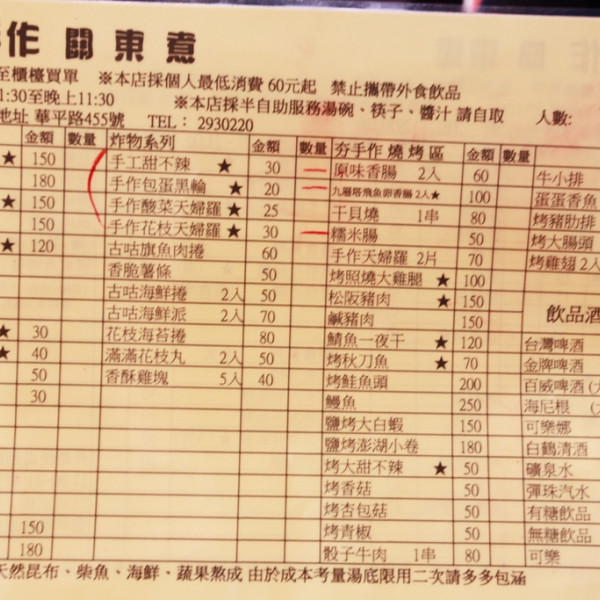 作 關東煮
至櫃檯買單 ※本店採個人最低消費 60元起 禁止攜帶外食飲品
1:30至晚上11:30 ※本店採半自助服務湯碗、筷子、醬汁 請自取 人數:
地址 華平路455號 TEL: 2930220
金額 數量 炸物系列 金額 數量 夯手作 燒烤區 金額 數量
★ 150 手工甜不辣 ★ 30 原味香腸 2入 60 牛小排
180 手作包蛋黑輪 ★ 20 九層塔飛魚卵香腸2入★ 100 蛋蛋香魚
★ 150 手作酸菜天婦羅 ★ 25 干貝燒 1串 80 烤豬肋排
150 手作花枝天婦羅 ★ 30 糯米腸 50 烤大腸頭
★ 120 古咕旗魚肉捲 60 手作天婦羅 2片 70 烤雞翅2入
香脆薯條 50 烤照燒大雞腿 ★ 100
古咕海鮮捲 2入 50 松阪豬肉 ★ 150
古咕海鮮派 2入 70 鹹豬肉 150 飲品酒
★ 30 花枝海苔捲 80 鯖魚一夜干 ★ 120 台灣啤酒
★ 40 滿滿花枝丸 2入 50 烤秋刀魚 ★ 70 金牌啤酒
50 香酥雞塊 5入 40 烤鮭魚頭 200 百威啤酒 (大
30 鰻魚 250 海尼根 (大
鹽烤大白蝦 150 可樂娜
鹽烤澎湖小卷 180 白鶴清酒
烤大甜不辣 ★ 50 礦泉水
烤香菇 50 彈珠汽水
烤杏包菇 50 有糖飲品
150 烤青椒 50 無糖飲品
180 骰子牛肉 1串 80 可樂
天然昆布、柴魚、海鮮、蔬果熬成 由於成本考量湯底限用二次請多多包涵